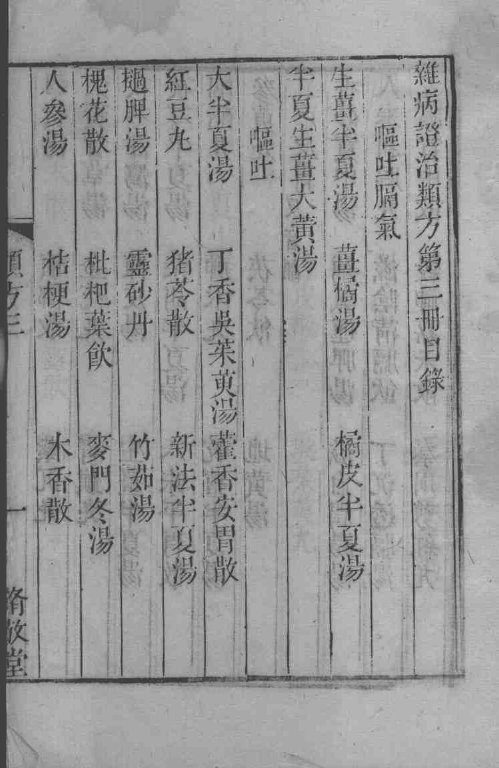 雜病證治類方第三冊目錄
嘔吐膈氣
生薑半夏湯 薑橘湯 橘皮半夏湯
半夏生薑大黃湯
嘔吐
大半夏湯 丁香吳茱萸湯 藿香安胃散
紅豆丸 豬苓散 新法半夏湯
撾脾湯 靈砂丹 竹茹湯
槐花散 枇杷葉飲 麥門冬湯
人參湯 桔梗湯 木香散
類方三 一 脩敬堂